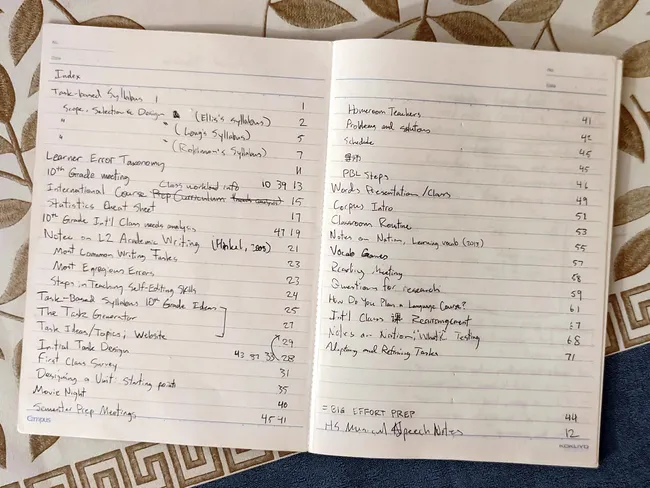 No.
Date
Index
Task-based Syllabus 1 1
Scope, Selection & Design (Ellis's syllabus) 2
" " (Long's Syllabus) 5
" " (Robinson's Syllabus) 7
Learner Error Taxonomy 11
10th Grade meeting Class workload info 10 39 13
International Course Prep Curriculum 15
Statistics Cheat Sheet 17
10th Grade Int'l Class needs analysis 47 19
Notes on L2 Academic Writing (Hinkel, 2003) 21
Most Common Writing Tasks 23
Most Egregious Errors 23
Steps in Teaching Self-Editing Skills 24
Task-Based Syllabus 10th Grade Ideas 25
The Task Generator 27
Task Ideas/Topics; Website 29
Initial Task Design 43 37 33 28
First Class Survey 31
Designing a Unit: starting point 35
Movie Night 40
Semester Prep Meetings 45 41
Campus
No.
Date
Homeroom Teachers 41
Problems and solutions 42
Schedule 45
45
PBL Steps 46
Words Presentation/Class 49
Corpus Intro 51
Classroom Routine 53
Notes on Nation, Learning vocab (2013) 55
Vocab Games 57
Reading Meeting 58
Questions for research 59
How Do You Plan a Language Course? 61
Int'l Class Rearrangement 67
Notes on Nation: Testing 68
Adapting and Retaining Tasks 71
= BIG EFFORT PREP 44
HS Musical Speech Notes 12
KOKUYO